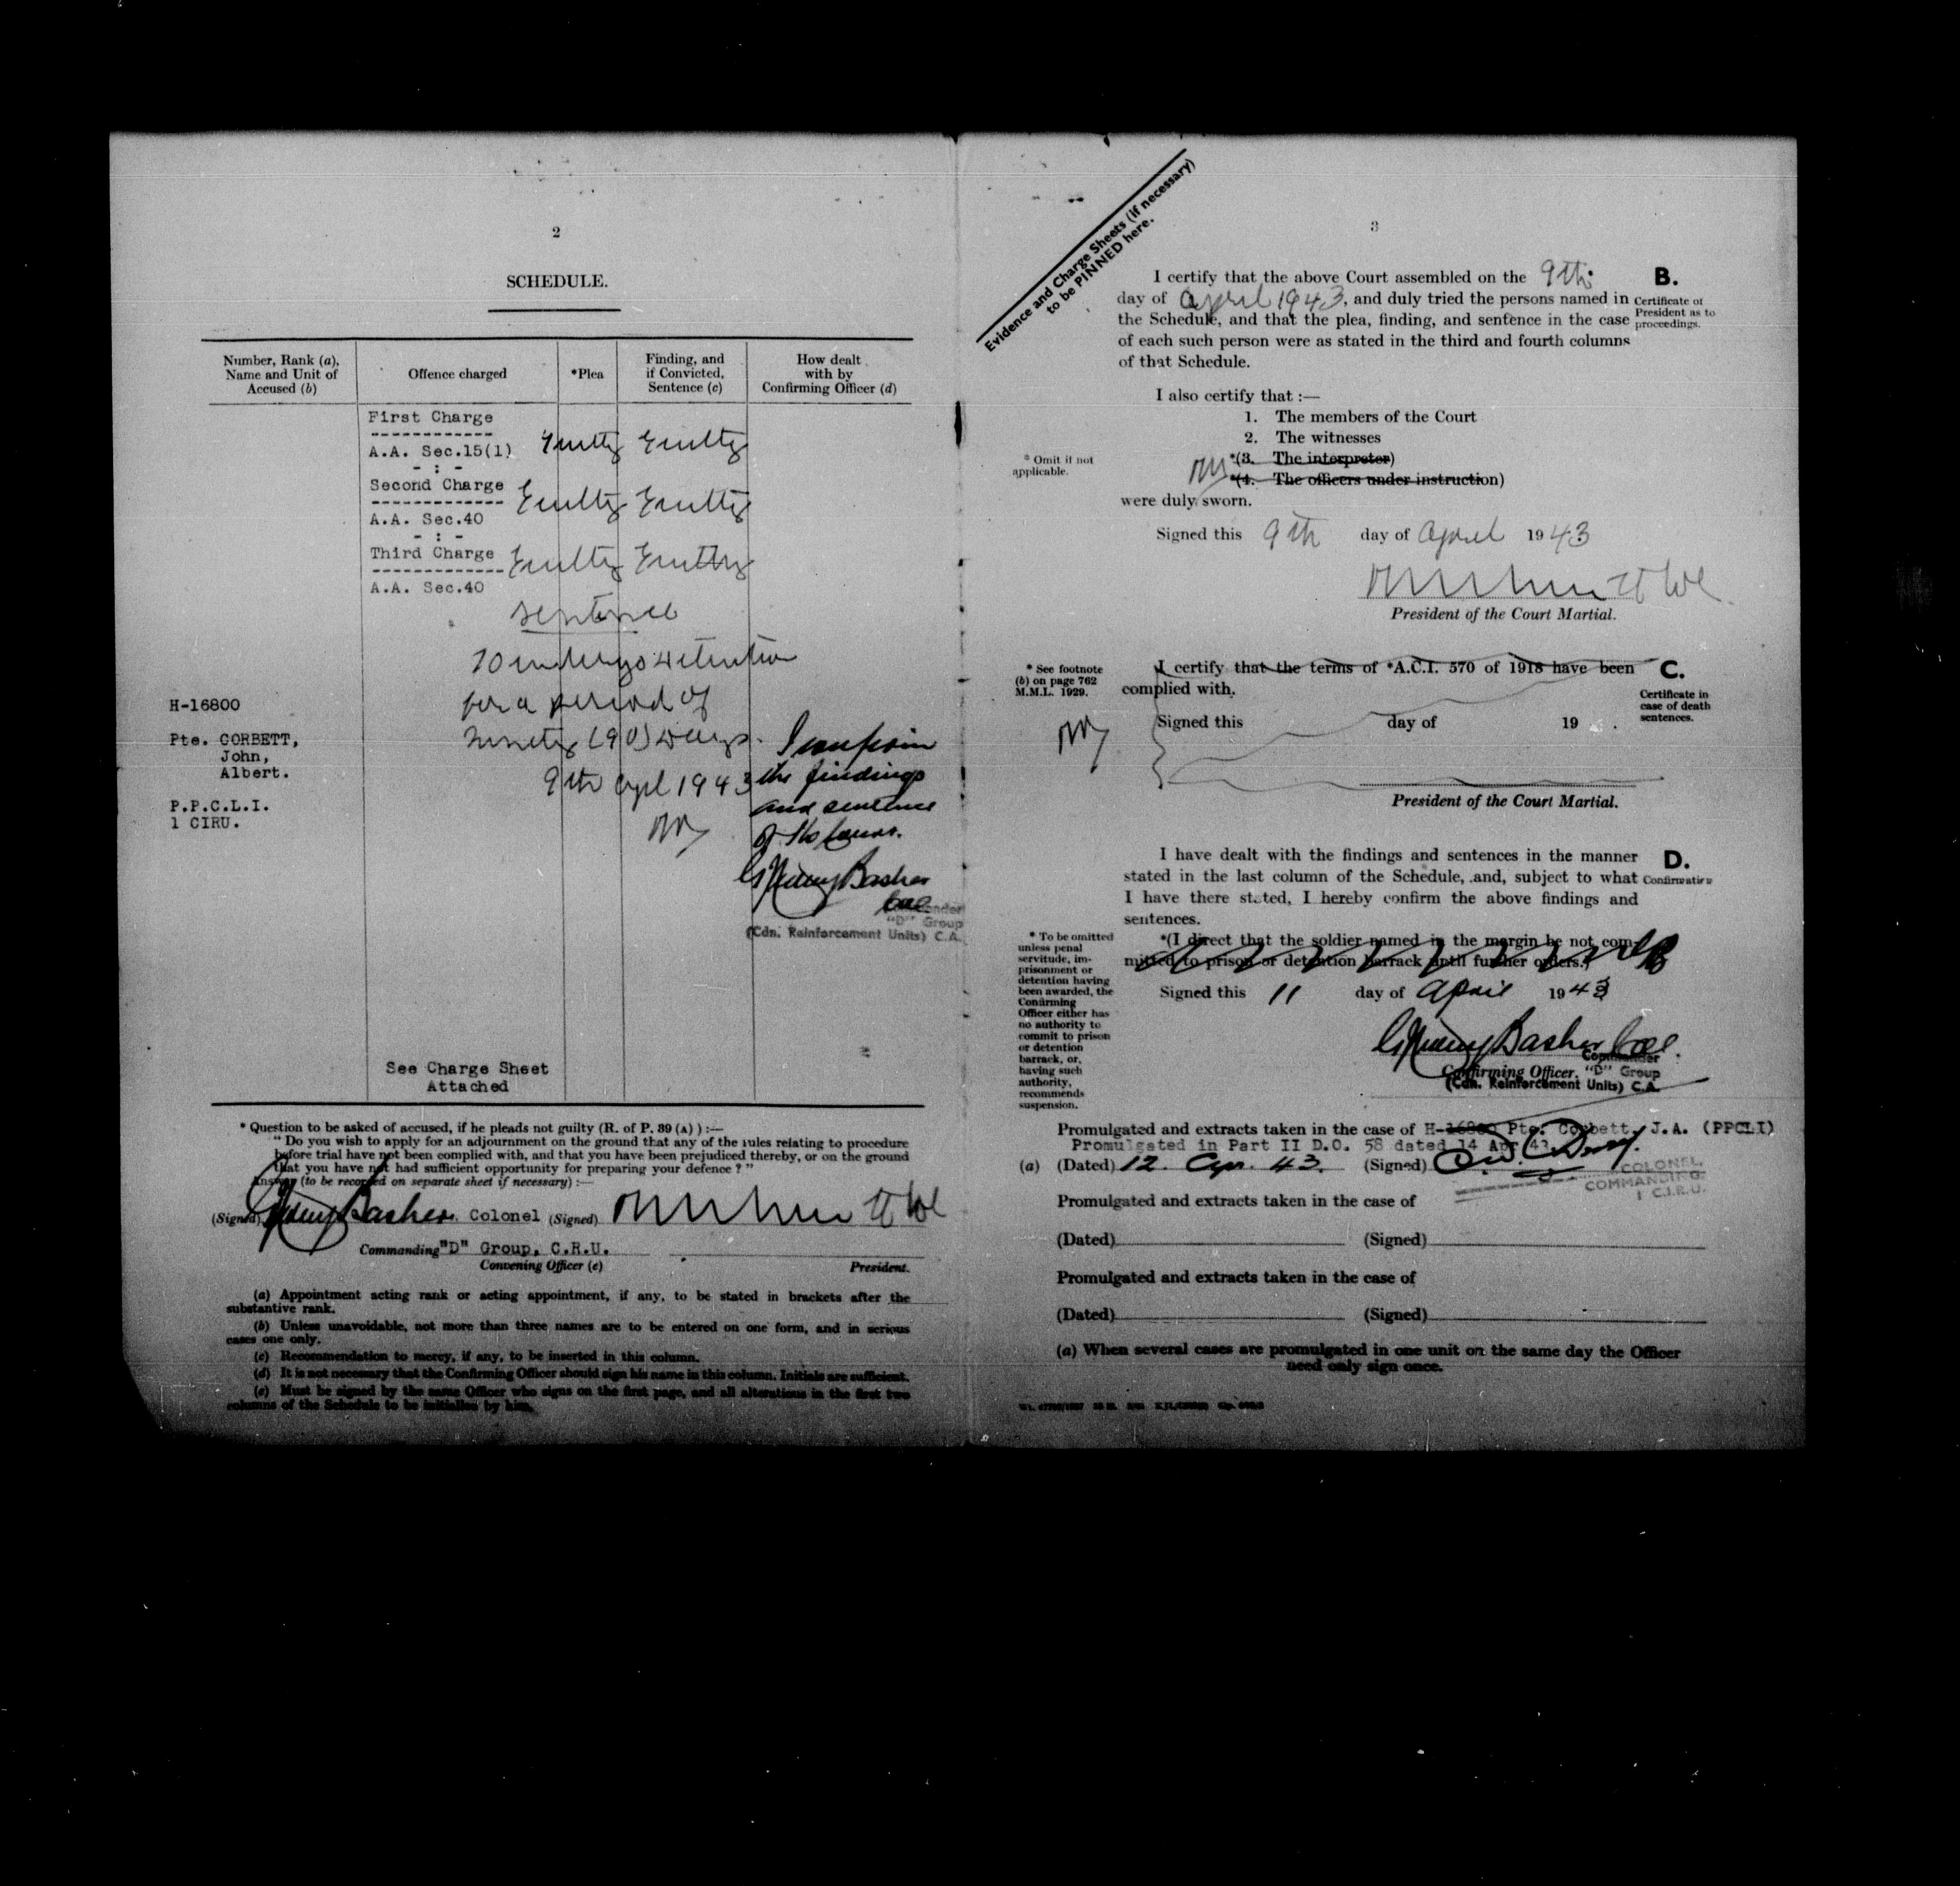 2
SCHEDULE.
Number, Rank (a), Name and Unit of Accused (b)
Offence charged
*Plea
Finding, and if Convicted, Sentence (c)
How dealt with by Confirming Officer (d)
First Charge
A.A. Sec.15(1) Guilty Guilty
- : -
Second Charge Guilty Guilty
A.A. Sec.40
- : -
Third Charge Guilty Guilty
A.A. Sec.40
Sentence
To undergo detention
for a period of
ninety (90) days.
9th Apl 1943
H-16800
Pte. CORBETT,
John,
Albert.
P.P.C.L.I.
1 CIRU.
I confirm
the findings
and sentence
of the Court.
Basher
Col
Commander
"D" Group
(Cdn. Reinforcement Units) C.A.
See Charge Sheet
Attached
* Question to be asked of accused, if he pleads not guilty (R. of P. 39 (A) ) :—
" Do you wish to apply for an adjournment on the ground that any of the rules relating to procedure
before trial have not been complied with, and that you have been prejudiced thereby, or on the ground
that you have not had sufficient opportunity for preparing your defence ? "
Answer (to be recorded on separate sheet if necessary) :—
(Signed) Basher Colonel (Signed) Lt Col
Commanding "D" Group, C.R.U.
Convening Officer (e) President.
(a) Appointment acting rank or acting appointment, if any, to be stated in brackets after the
substantive rank.
(b) Unless unavoidable, not more than three names are to be entered on one form, and in serious
cases one only.
(c) Recommendation to mercy, if any, to be inserted in this column.
(d) It is not necessary that the Confirming Officer should sign his name in this column. Initials are sufficient.
(e) Must be signed by the same Officer who signs on the first page, and all alterations in the first two
columns of the Schedule to be initialled by him.
Evidence and Charge Sheets (if necessary)
to be PINNED here.
3
I certify that the above Court assembled on the 9th
day of April 1943, and duly tried the persons named in
the Schedule, and that the plea, finding, and sentence in the case
of each such person were as stated in the third and fourth columns
of that Schedule.
B.
Certificate of
President as to
proceedings.
I also certify that :—
1. The members of the Court
2. The witnesses
*(3. The interpreter)
*(4. The officers under instruction)
were duly sworn.
* Omit if not
applicable.
Signed this 9th day of April 1943
Lt Col
President of the Court Martial.
* See footnote
(b) on page 762
M.M.L. 1929.
I certify that the terms of *A.C.I. 570 of 1918 have been
complied with.
C.
Certificate in
case of death
sentences.
Signed this day of 19 .
President of the Court Martial.
I have dealt with the findings and sentences in the manner
stated in the last column of the Schedule, and, subject to what
I have there stated, I hereby confirm the above findings and
sentences.
D.
Confirmation
*(I direct that the soldier named in the margin be not com-
mitted to prison or detention barrack until further orders.)
* To be omitted
unless penal
servitude, im-
prisonment or
detention having
been awarded, the
Confirming
Officer either has
no authority to
commit to prison
or detention
barrack, or,
having such
authority,
recommends
suspension.
Signed this 11 day of April 1943
Basher Col.
Commander
Confirming Officer. "D" Group
(Cdn. Reinforcement Units) C.A.
Promulgated and extracts taken in the case of H-16800 Pte. Corbett, J.A. (PPCLI)
Promulgated in Part II D.O. 58 dated 14 Apr 43
(a) (Dated) 12. Apr. 43. (Signed)
COLONEL,
COMMANDING.
1 C.I.R.U.
Promulgated and extracts taken in the case of
(Dated) (Signed)
Promulgated and extracts taken in the case of
(Dated) (Signed)
(a) When several cases are promulgated in one unit on the same day the Officer
need only sign once.